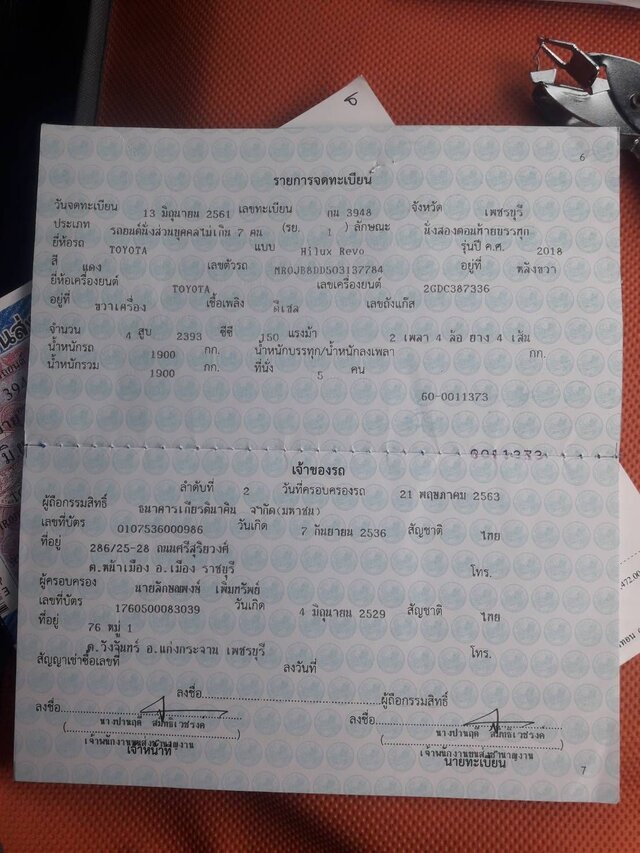 6
รายการจดทะเบียน
วันจดทะเบียน 13 มิถุนายน 2561 เลขทะเบียน กน 3948 จังหวัด เพชรบุรี
ประเภท รถยนต์นั่งส่วนบุคคลไม่เกิน 7 คน (รย. 1) ลักษณะ นั่งสองตอนท้ายบรรทุก
ยี่ห้อรถ TOYOTA แบบ Hilux Revo รุ่นปี ค.ศ. 2018
สี แดง เลขตัวรถ MR0JB8DD503137784 อยู่ที่ พลังขวา
ยี่ห้อเครื่องยนต์ TOYOTA เลขเครื่องยนต์ 2GDC387336
อยู่ที่ ขวาเครื่อง เชื้อเพลิง ดีเซล เลขถังแก๊ส
จำนวน 4 สูบ 2393 ซีซี 150 แรงม้า 2 เพลา 4 ล้อ ยาง 4 เส้น
น้ำหนักรถ 1900 กก. น้ำหนักบรรทุก/น้ำหนักลงเพลา กก.
น้ำหนักรวม 1900 กก. ที่นั่ง 5 คน
60-0011373
0011373
เจ้าของรถ
ลำดับที่ 2 วันที่ครอบครองรถ 21 พฤษภาคม 2563
ผู้ถือกรรมสิทธิ์ ธนาคารเกียรตินาคิน จำกัด(มหาชน)
เลขที่บัตร 0107536000986 วันเกิด 7 กันยายน 2536 สัญชาติ ไทย
ที่อยู่ 286/25-28 ถนนศรีสุริยวงศ์
ต.หน้าเมือง อ.เมือง ราชบุรี โทร.
ผู้ครอบครอง นายลักษณพงษ์ เพิ่มทรัพย์
เลขที่บัตร 1760500083039 วันเกิด 4 มิถุนายน 2529 สัญชาติ ไทย
ที่อยู่ 76 หมู่ 1
ต.วังจันทร์ อ.แก่งกระจาน เพชรบุรี โทร.
สัญญาเช่าซื้อเลขที่ ลงวันที่
ลงชื่อ ผู้ถือกรรมสิทธิ์
ลงชื่อ ลงชื่อ
เจ้าหน้าที่ นายทะเบียน
7